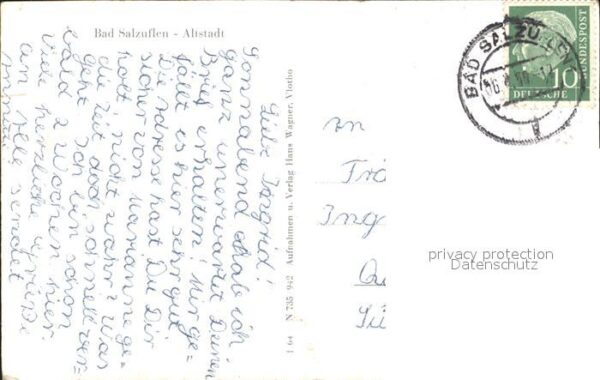 Bad Salzuflen - Altstadt
Liebe Ingrid!
Sonnabend habe ich
ganz unerwartet Deinen
Brief erhalten! Mir ge-
fällt es hier sehr gut.
Die Adresse hast Du Dir
sicher von Marianne ge-
holt, nicht wahr? War
die Zeit doch schnell ver-
geht. Ich bin schon
bald 2 Wochen hier.
Viele herzliche Grüße
an alle sendet
1 64 N 735 942 Aufnahmen u. Verlag Hans Wagner, Vlotho
BAD SALZUFLEN
10
DEUTSCHE
BUNDESPOST
An
Frä
Ing
privacy protection
Datenschutz